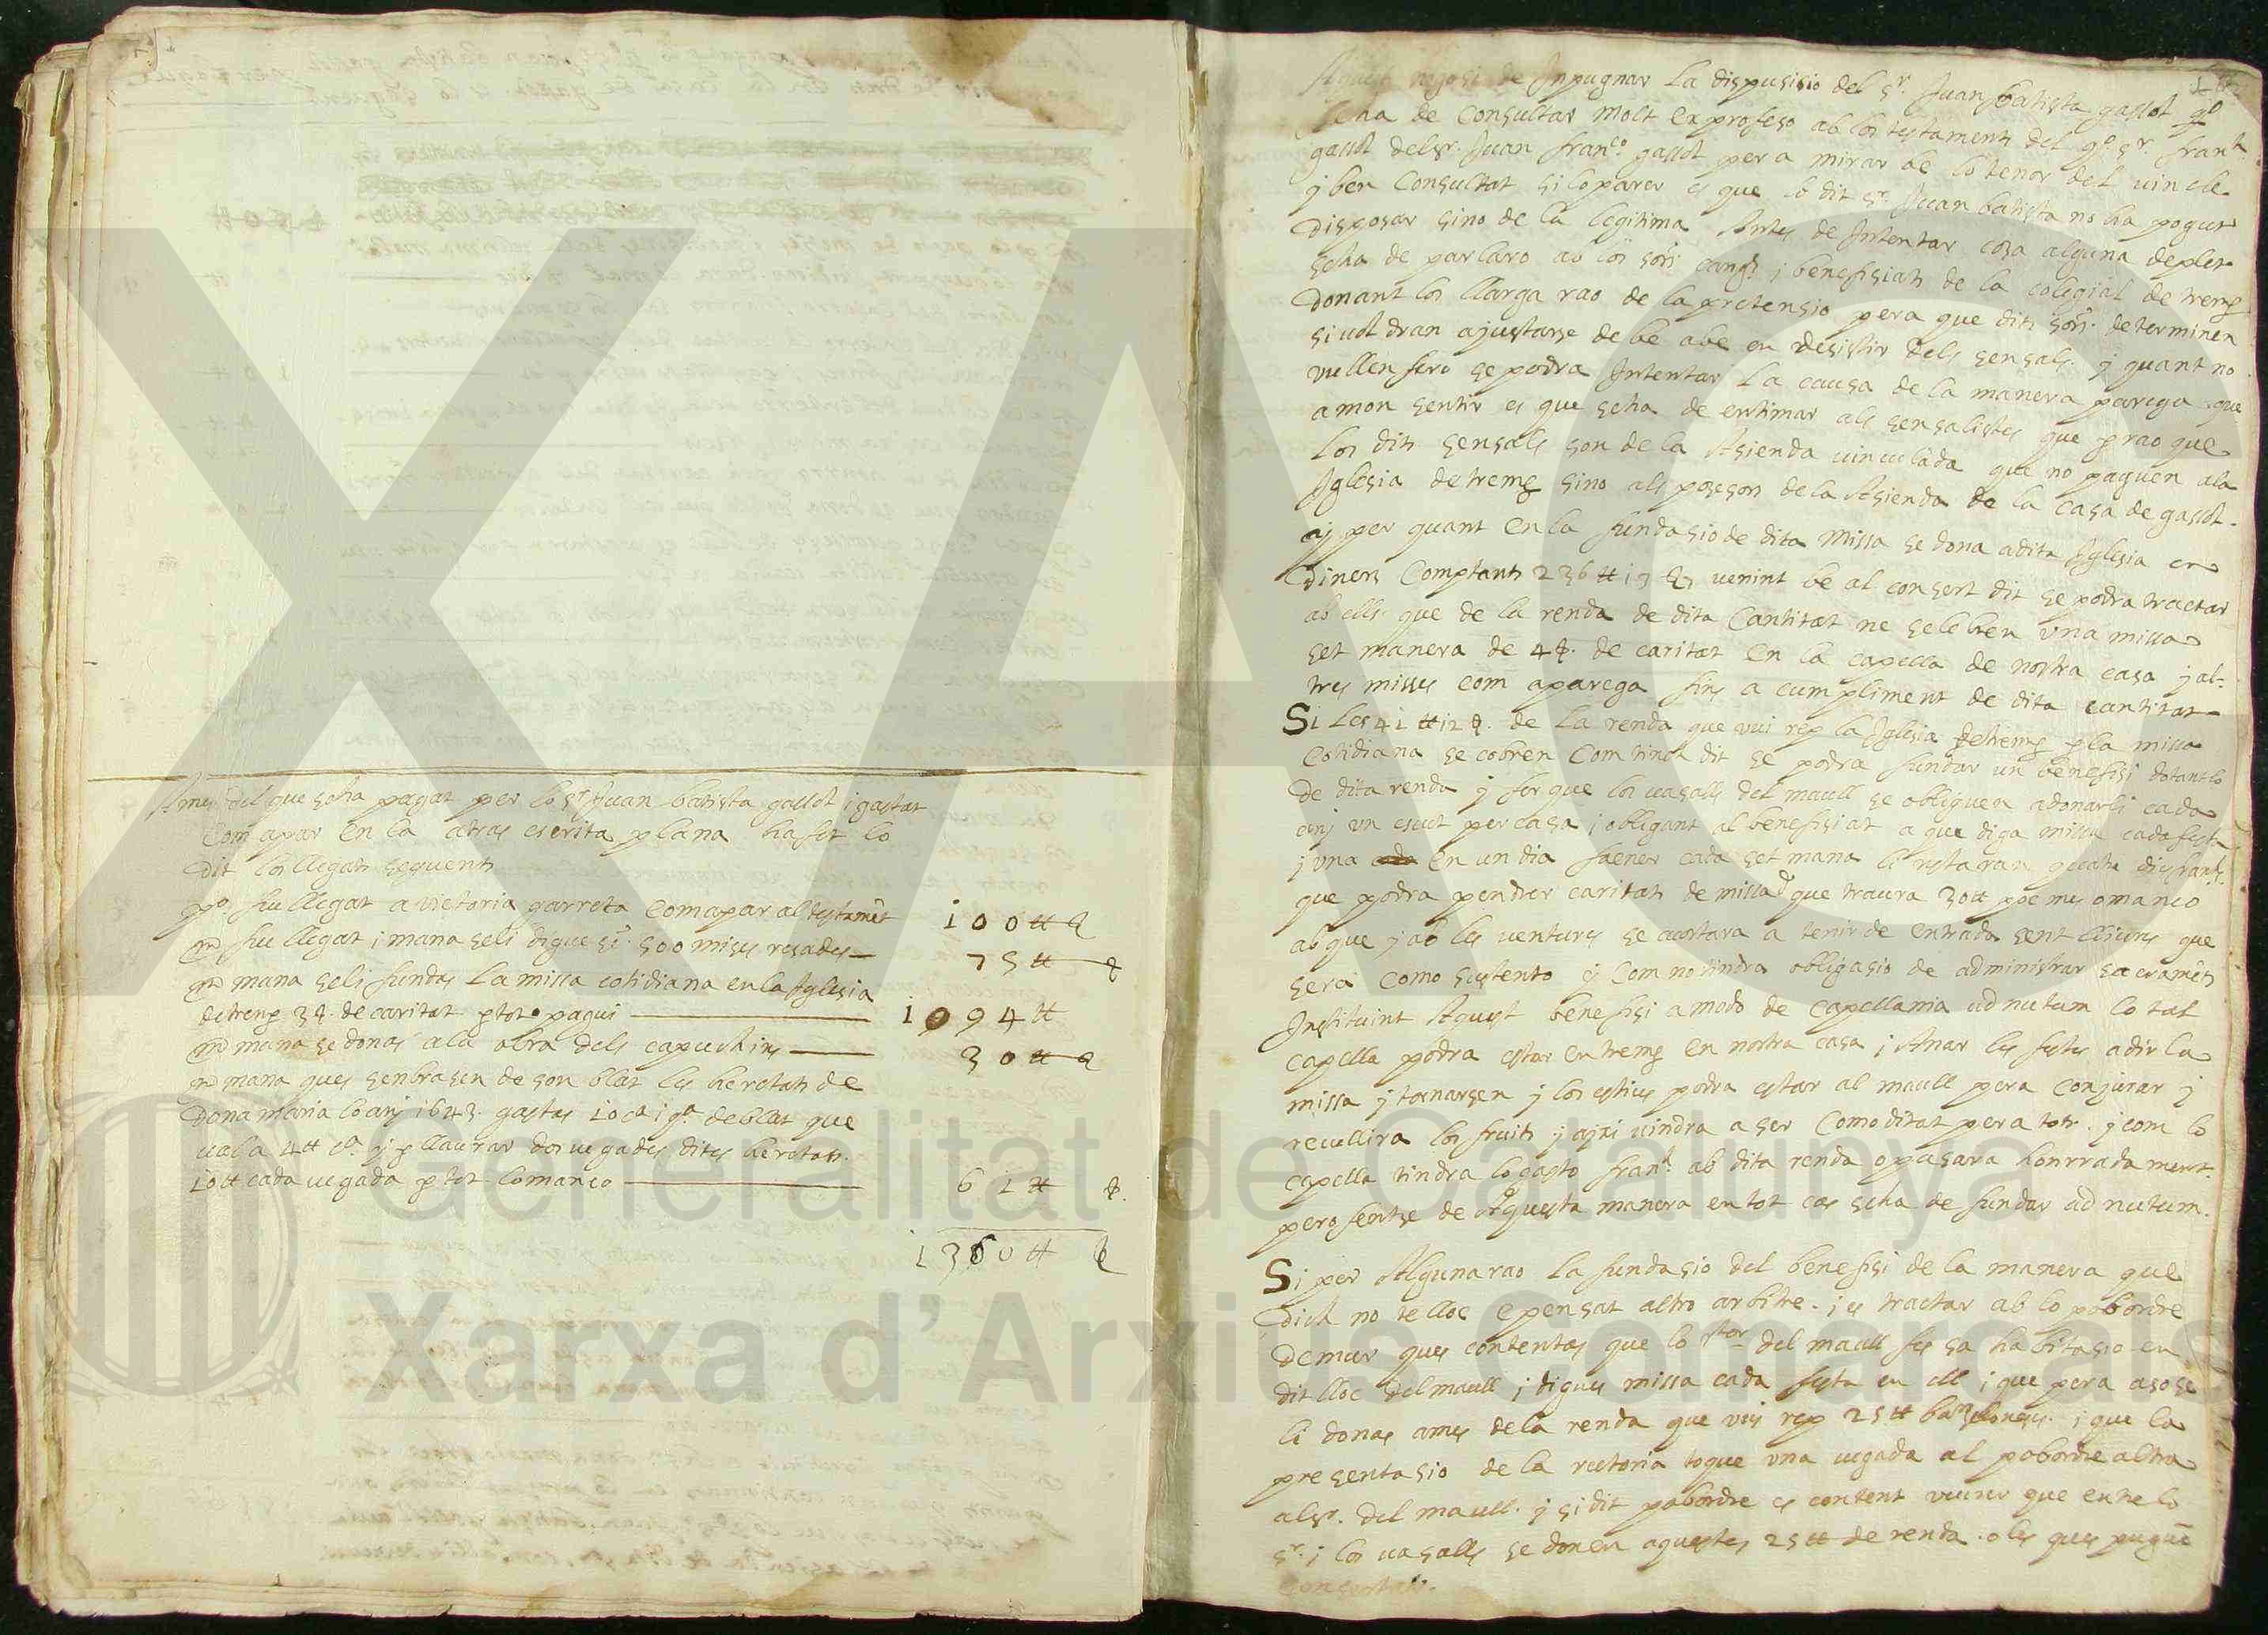 A mes del que seha pagat per lo sr Juan batista gassol i gastat
com apar en la atras escrita plana ha fet lo
dit los llegats seguents
po. feu llegat a victoria garreta com apar al testamēt 100 ℔ ß
mes feu llegat i mana seli digues sī. 500 mises resades — 75 ℔ ß
mes mana seli fundas la missa cotidiana en la Iglesia
de tremp 3 ß. de caritat p tot pagui — 1094 ℔
mes mana se donas ala obra dels caputxins — 30 ℔ ß
mes mana ques senbrasen de son blat les heretats de
Dona maria lo anj 1643. gastas 10 ca 1 qa. de blat que
valia 4 ℔ ca. y p llaurar dos vegades dites heretats.
10 ℔ cada vegada p tot lo manco — 61 ℔ ß.
1360 ℔ ß
Aquest negosi de Inpugnar la dispusisio del sr. Juan batista gassol qo
seha de consultar molt ex profeso ab los testaments del qo. sr. franch.
gassol del sr. Juan franco. gassol pera mirar be lo tenor del vincle
y ben consultat si lo parer es que lo dit sr. Juan batista no ha pogut
disposar sino de la legitima Antes de Intentar cosa alguna de plet
seha de parlaro ab los sors cangs. i benefisiats de la colegial de tremp
donant los llarga rao de la pretensio pera que dits sors. determinen
si voldran ajustarse de be abe en desistir dels sensals. y quant no
vullen fero se podra Intentar la causa de la manera parega que
a mon sentir es que seha de entimar als sensalistes que p rao que
los dits sensals son de la Asienda vinculada que no paguen ala
Iglesia de tremp sino als posesors de la Asienda de la casa de gassol.
y per quant en la fundasio de dita Missa se dona adita Iglesia en
diners comptants 236 ℔ 13 ß 3 venint be al consert dit se podra tractar
ab ells que de la renda de dita cantitat ne selebren una missa
set manera de 4 ß. de caritat en la capella de nostra casa y al-
tres misses com aparega fins a cumpliment de dita cantitat
Si les 41 ℔ 12 ß. de la renda que vui rep la Iglesia de tremp p la missa
cotidiana se cobren com tinch dit se podra fundar un benefisi dotantlo
de dita renda y fer que los vasalls del maull se obliguen adonarli cada
anj un escut per casa i obligant al benefisiat a que diga missa cada festa
i una en un dia faener cada set mana li restaran quatre dies franchs.
que podra pendrer caritats de missa que traura 30 ℔ poc mes o manco
ab que y ab les ventures se acostara a tenir de entrada sent lliures que
sera como sustento y com no tindra obligasio de administrar sacramēts
Instituint Aquest benefisi a modo de capellania ad nutum lo tal
capella podra estar en tremp en nostra casa i Anar les festes a dir la
missa y tornarsen y los estius podra estar al maull pera conjurar y
recullira los fruits y axi vindra a ser comoditat pera tots. y com lo
capella tindra lo gasto franch. ab dita renda o pasara honrradament.
pero fentse de Aquesta manera en tot cas seha de fundar ad nutum.
Si per Alguna rao la fundasio del benefisi de la manera que
dich no te lloc e pensat altro arbitre. i es tractar ab lo pabordre
de mur ques contentas que lo rtor del maull fes sa habitasio en
dit lloc del maull i digues missa cada festa en ell i que pera aso se
li donas ames de la renda que vui rep 25 ℔ barselonesas. i que la
presentasio de la rectoria toque una vegada al pabordre altra
al sr. del maull. y si dit pabordre es content veurer que entre lo
sr. i los vasalls se donen aquestes 25 ℔ de renda. o les ques puguē
consertar.
Generalitat de Catalunya
Xarxa d'Arxius Comarcals
XAC